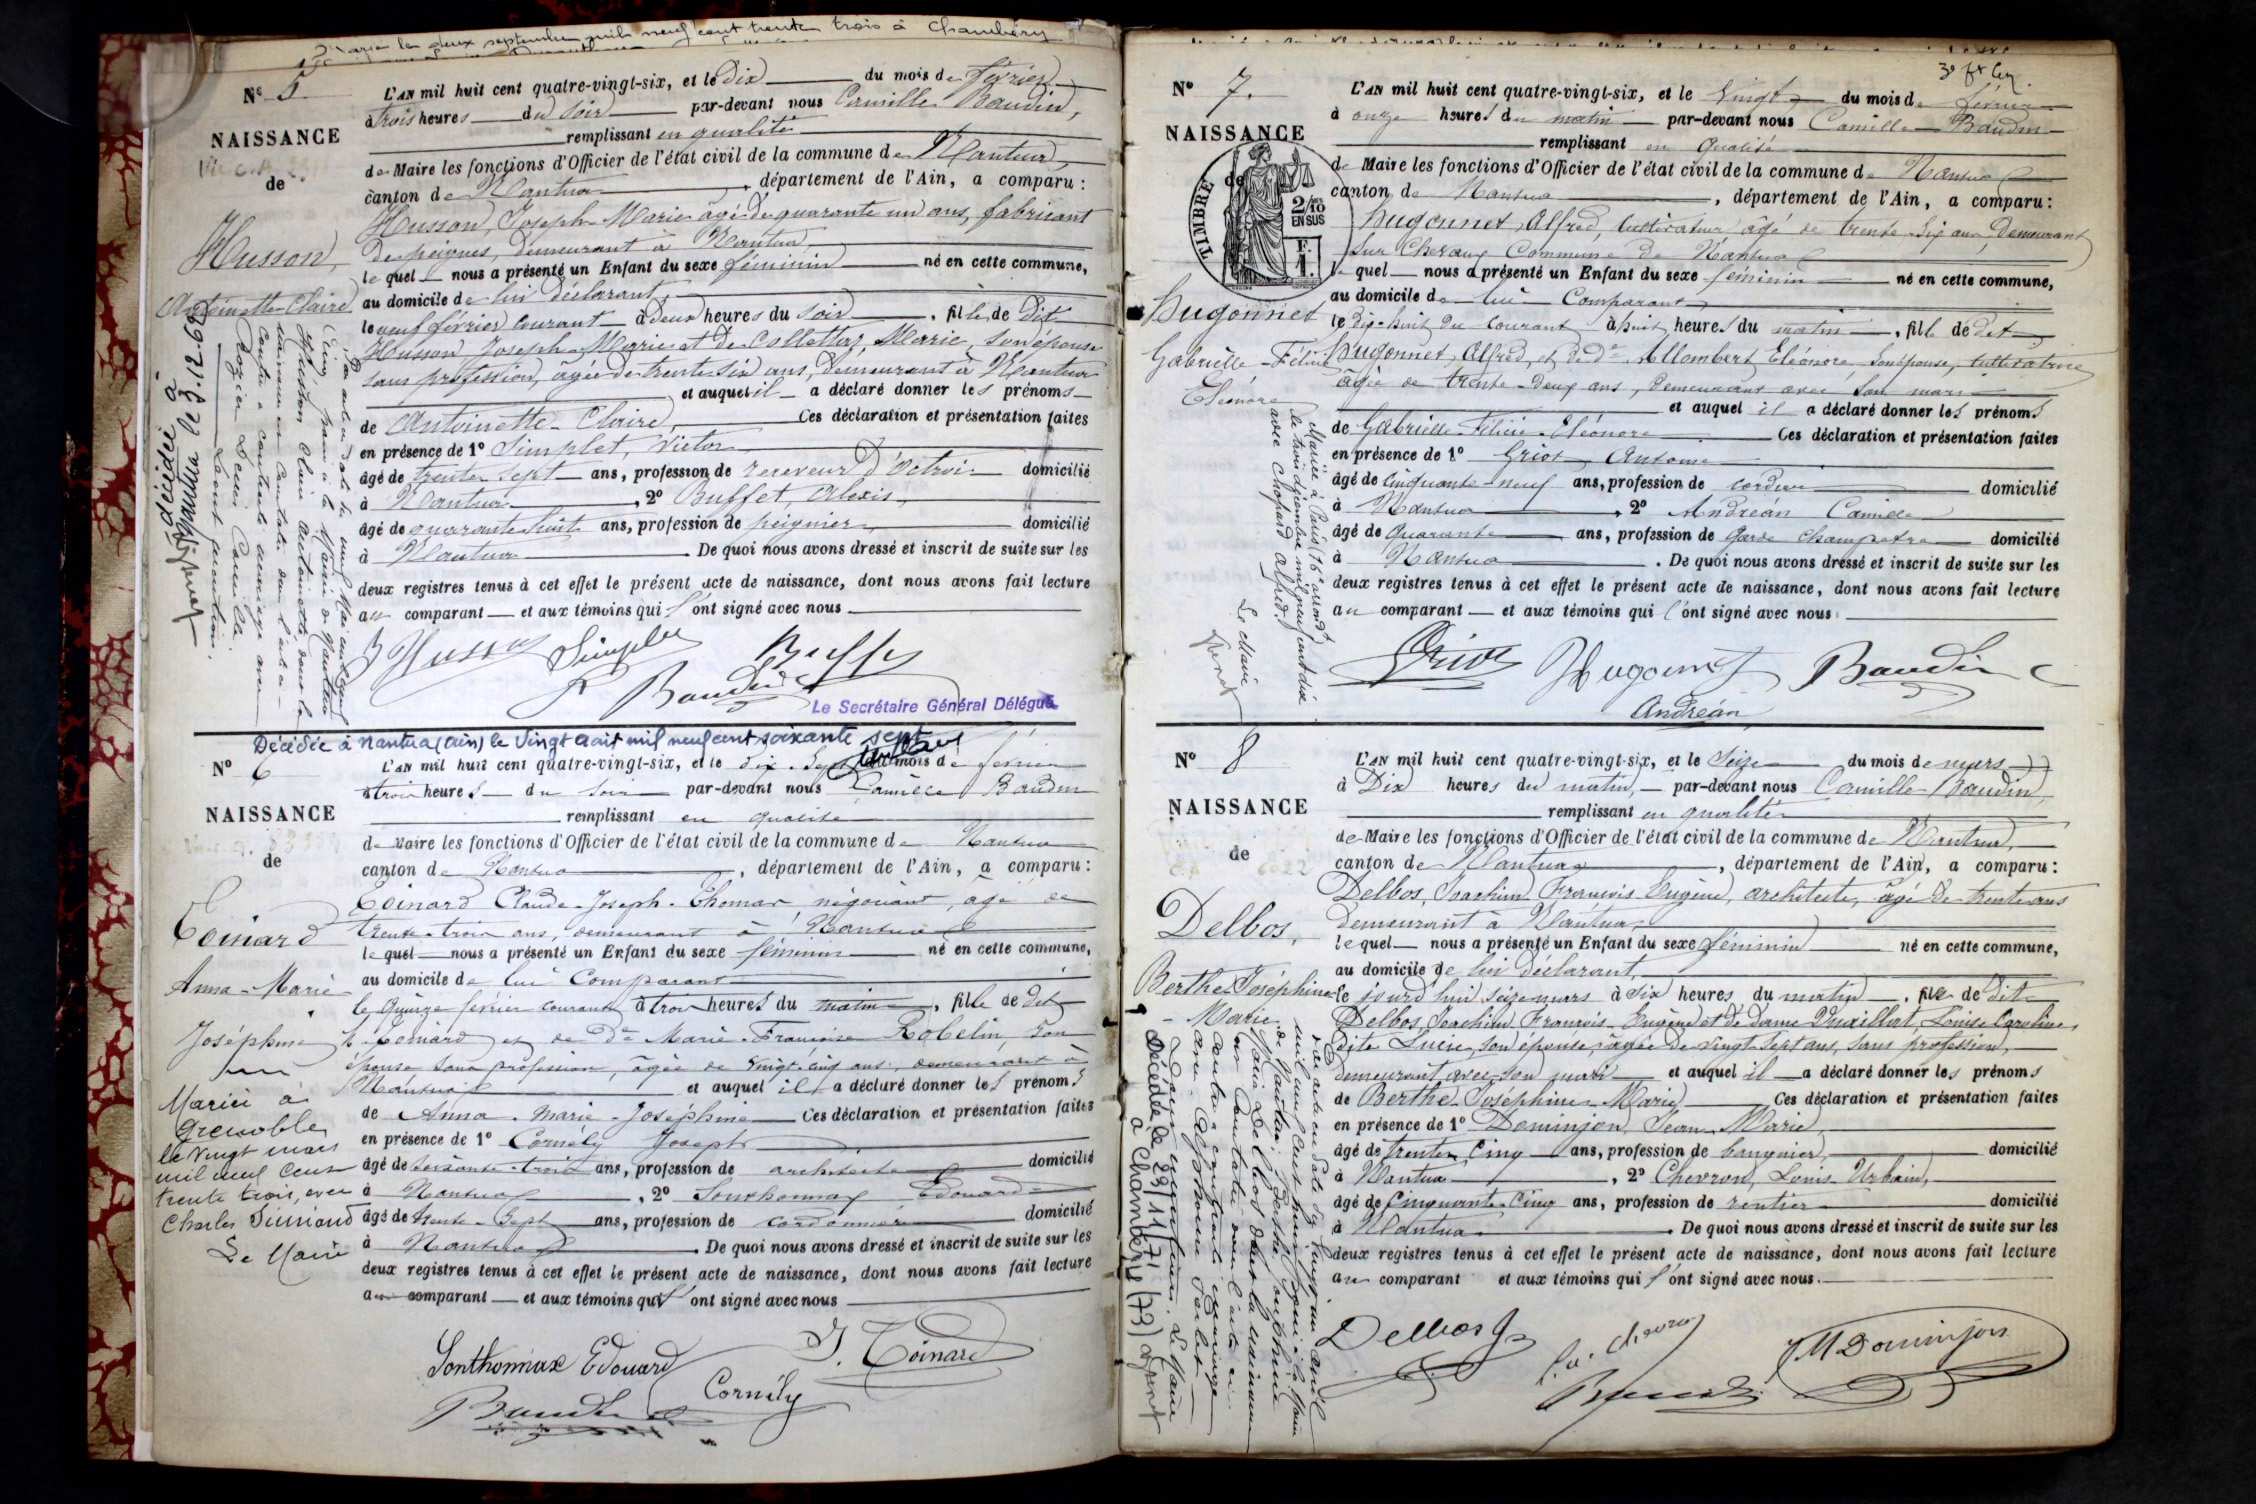 Marié le deux septembre mil neuf cent trente trois à Chambéry
N° 5
NAISSANCE
de
Husson,
Antoinette-Claire
L'AN mil huit cent quatre-vingt-six, et le dix du mois de février
à trois heures du soir par-devant nous Camille Baudin,
remplissant en qualité
de Maire les fonctions d'Officier de l'état civil de la commune de Nantua,
canton de Nantua, département de l'Ain, a comparu :
Husson, Joseph-Marie âgé de quarante un ans, fabricant
de peignes, demeurant à Nantua,
lequel nous a présenté un Enfant du sexe féminin né en cette commune,
au domicile de lui déclarant,
le neuf février courant à deux heures du soir, fille de dit
Husson Joseph-Marie et de Collettaz, Marie, son épouse
sans profession, agée de trente six ans, demeurant à Nantua
et auquel il a déclaré donner les prénoms
de Antoinette-Claire, Ces déclaration et présentation faites
en présence de 1° Simplet, Victor
âgé de trente sept ans, profession de receveur d'Octroi domicilié
à Nantua, 2° Buffet, Alexis,
âgé de quarante huit ans, profession de peignier, domicilié
à Nantua. De quoi nous avons dressé et inscrit de suite sur les
deux registres tenus à cet effet le présent acte de naissance, dont nous avons fait lecture
au comparant et aux témoins qui l'ont signé avec nous
J Husson Simplet Buffet
Baudin
Le Secrétaire Général Délégué
décédée à
Nantua le 3.12.62
Décédée à Nantua (Ain) le vingt août mil neuf cent soixante sept
N° 6
NAISSANCE
de
Coinard
Anna-Marie
Joséphine
Mariée à
Grenoble
le vingt mars
mil neuf cent
trente trois, avec
Charles
Le Maire
L'AN mil huit cent quatre-vingt-six, et le dix-Sept du mois de février
à trois heures du soir par-devant nous Camille Baudin
remplissant en qualité
de Maire les fonctions d'Officier de l'état civil de la commune de Nantua
canton de Nantua, département de l'Ain, a comparu :
Coinard Claude-Joseph-Thomas négociant, âgé de
trente-trois ans, demeurant à Nantua
lequel nous a présenté un Enfant du sexe féminin né en cette commune,
au domicile de lui Comparant
le quinze février courant à trois heures du matin, fille de dit
Coinard et de De Marie-Françoise Robelin, son
épouse sans profession, âgée de vingt-cinq ans, demeurant à
Nantua et auquel il a déclaré donner les prénoms
de Anna-Marie-Joséphine Ces déclaration et présentation faites
en présence de 1° Cornély Joseph
âgé de soixante-trois ans, profession de architecte domicilié
à Nantua, 2° Sonthonnax Edouard
âgé de trente-Sept ans, profession de cordonnier domicilié
à Nantua. De quoi nous avons dressé et inscrit de suite sur les
deux registres tenus à cet effet le présent acte de naissance, dont nous avons fait lecture
au comparant et aux témoins qui l'ont signé avec nous
Sonthonnax Edouard J. Coinard
Baudin Cornély
N° 7.
NAISSANCE
de
TIMBRE
2/10
EN SUS
F.
1.
Hugonnet
Gabrielle-Félicie
Eléonore
L'AN mil huit cent quatre-vingt-six, et le Vingt du mois de février
à onze heures du matin par-devant nous Camille Baudin
remplissant en qualité
de Maire les fonctions d'Officier de l'état civil de la commune de Nantua
canton de Nantua, département de l'Ain, a comparu :
Hugonnet, Alfred, Cultivateur âgé de trente-Six ans, Demeurant
Sur Cheraux Commune de Nantua
lequel nous a présenté un Enfant du sexe féminin né en cette commune,
au domicile de lui Comparant,
le dix-huit du courant à huit heures du matin, fille de dit
Hugonnet, Alfred, et de De Allombert Eléonore, Son épouse, cultivatrice
âgée de trente-Deux ans, Demeurant avec Son mari
et auquel il a déclaré donner les prénoms
de Gabrielle-Félicie-Eléonore Ces déclaration et présentation faites
en présence de 1° Griot Antoine
âgé de Cinquante-neuf ans, profession de cordier domicilié
à Nantua, 2° Andréan Camille
âgé de Quarante ans, profession de garde champetre domicilié
à Nantua. De quoi nous avons dressé et inscrit de suite sur les
deux registres tenus à cet effet le présent acte de naissance, dont nous avons fait lecture
au comparant et aux témoins qui l'ont signé avec nous.
Griot Hugonnet Baudin
Andréan
Mariée à Paris (16e arrondt)
le trois décembre mil neuf cent dix
avec Chopard Alfred.
Le Maire
N° 8
NAISSANCE
de
Delbos,
Berthe-Joséphine
-Marie
L'AN mil huit cent quatre-vingt-six, et le Seize du mois de mars
à Dix heures du matin, par-devant nous Camille Baudin,
remplissant en qualité
de Maire les fonctions d'Officier de l'état civil de la commune de Nantua,
canton de Nantua, département de l'Ain, a comparu :
Delbos, Joachim François Eugène, architecte, âgé de trente ans
demeurant à Nantua,
lequel nous a présenté un Enfant du sexe féminin né en cette commune,
au domicile de lui déclarant,
le jourd'hui seize mars à six heures du matin, fille de dit
Delbos, Joachim, François-Eugène et de dame Vuaillat, Louise Caroline
dite Lucie, son épouse, agée de vingt sept ans, sans profession,
demeurant avec son mari et auquel il a déclaré donner les prénoms
de Berthe-Joséphine-Marie, Ces déclaration et présentation faites
en présence de 1° Dominjon, Jean Marie,
âgé de trente Cinq ans, profession de banquier, domicilié
à Nantua, 2° Chevron, Louis-Urbain,
âgé de Cinquante-Cinq ans, profession de rentier domicilié
à Nantua. De quoi nous avons dressé et inscrit de suite sur les
deux registres tenus à cet effet le présent acte de naissance, dont nous avons fait lecture
au comparant et aux témoins qui l'ont signé avec nous.
Delbos
Baudin
M Dominjon
Décédée le 23/11/71
à Chambéry (73)